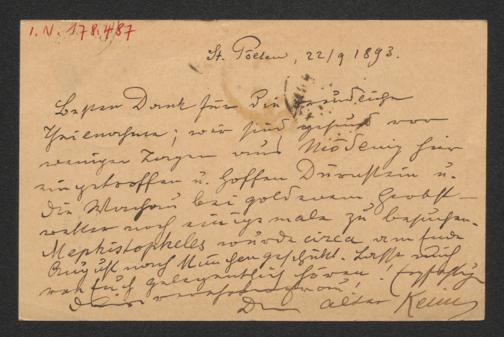 I.N. 178.487
St. Pölten, 22/9 1893.
Besten Dank für die freundliche
Theilnahme; wir sind gesund vor
wenigen Tagen aus Mödling hier
eingetroffen u. hoffen Dürnstein u.
die Wachau bei goldenem Herbst-
wetter noch einige male zu besuchen.
Mephistopheles wurde circa am Ende
August nach München geschickt. Lasse mich
von Euch gelegentlich hören!
Dein alter